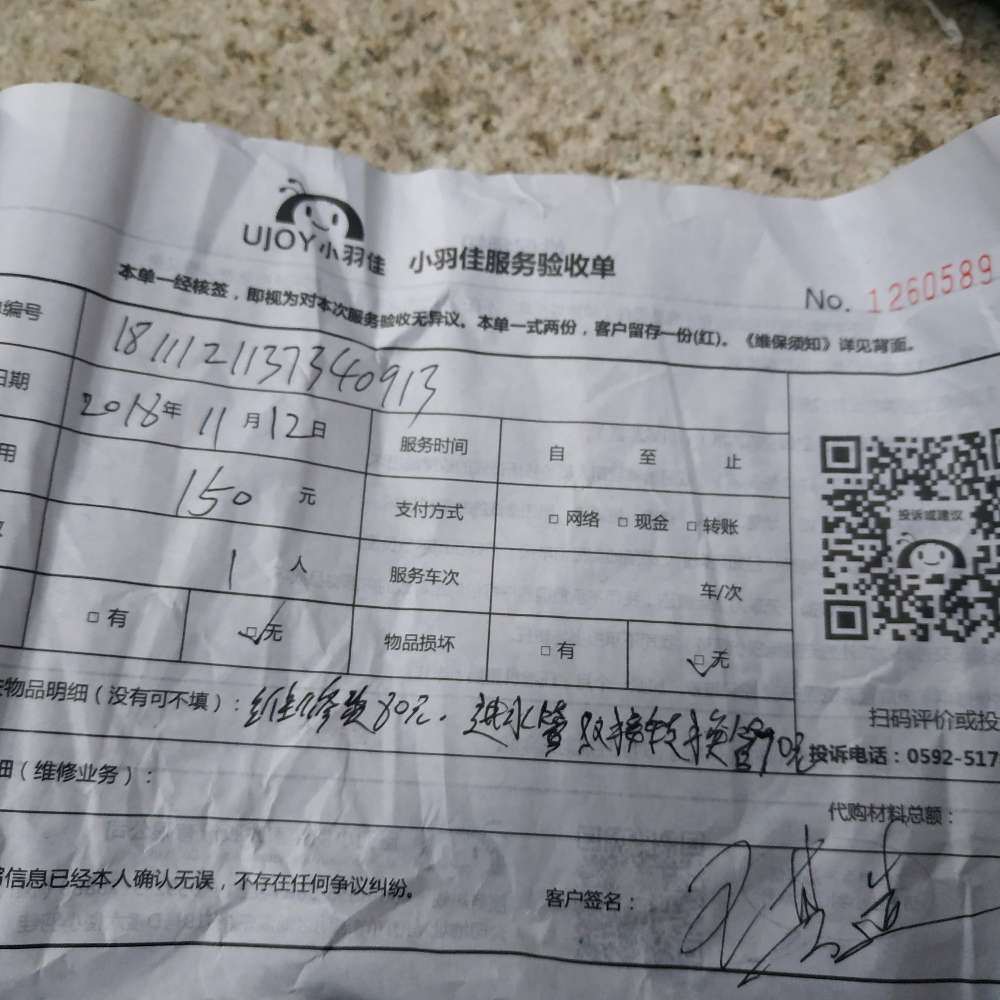 UJOY小羽佳 小羽佳服务验收单
No. 1260589
本单一经核签，即视为对本次服务验收无异议。本单一式两份，客户留存一份(红)。《维保须知》详见背面。
编号 181112113734 0913
日期 2018年11月12日 服务时间 自 至 止
用 150 元 支付方式 □网络 □现金 □转账
1 人 服务车次 车/次
□有 ☑无 物品损坏 □有 ☑无
投诉或建议
扫码评价或投
物品明细（没有可不填）：维修费80元. 进水管双接转换管70元
投诉电话：0592-517
细（维修业务）：
代购材料总额：
信息已经本人确认无误，不存在任何争议纠纷。 客户签名：